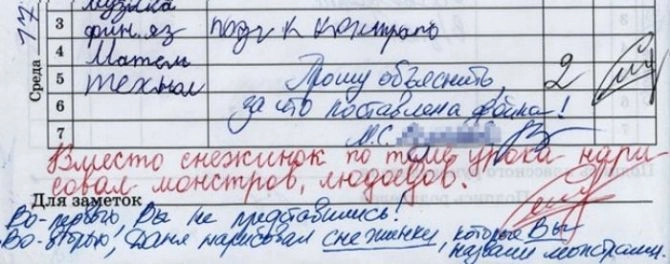 Среда 17
музыка
3 фин. яз подг к контраль
4 Матем
5 технол Прошу объяснить, 2
6 за что поставлена двойка!
7 М.С.
Вместо снежинок по теме урока нари
совал монстров, людоедов.
Для заметок
Во-первых, Вы не представились!
Во-вторых, Даня нарисовал снежинки, которые Вы
назвали монстрами.